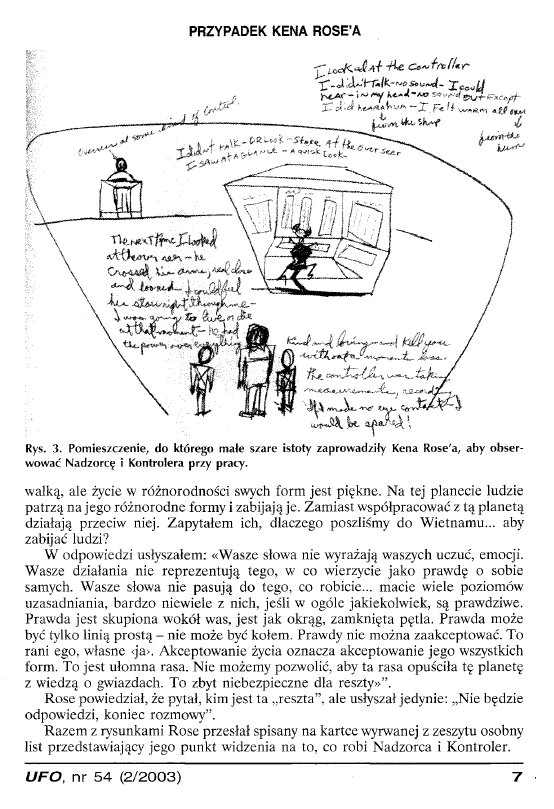 PRZYPADEK KENA ROSE'A
I Looked At the Controller
I-didn't Talk-no sound- I could
hear-in my head-no sound BUT Except
I did hear a hum - I Felt warm all over
from the ship
from the
hum
Overseer at some kind of Control.
I didn't talk - OR Look - Stare At the overseer
I SAW AT A GLANCE - a quick Look-
The next time I looked
at the over seer - he
Crossed his arms, real close
and looked - I could feel
his stare right through me-
I was going to live, or die
at that moment - he had
the power over everything
Kind and loving - and kill you
without a moments loss.
The controller was taking
measurements, record
If I made no eye contact I
would be spared!
Rys. 3. Pomieszczenie, do którego małe szare istoty zaprowadziły Kena Rose'a, aby obser-
wować Nadzorcę i Kontrolera przy pracy.
walką, ale życie w różnorodności swych form jest piękne. Na tej planecie ludzie
patrzą na jego różnorodne formy i zabijają je. Zamiast współpracować z tą planetą
działają przeciw niej. Zapytałem ich, dlaczego poszliśmy do Wietnamu... aby
zabijać ludzi?
W odpowiedzi usłyszałem: «Wasze słowa nie wyrażają waszych uczuć, emocji.
Wasze działania nie reprezentują tego, w co wierzycie jako prawdę o sobie
samych. Wasze słowa nie pasują do tego, co robicie... macie wiele poziomów
uzasadniania, bardzo niewiele z nich, jeśli w ogóle jakiekolwiek, są prawdziwe.
Prawda jest skupiona wokół was, jest jak okrąg, zamknięta pętla. Prawda może
być tylko linią prostą – nie może być kołem. Prawdy nie można zaakceptować. To
rani ego, własne ‹ja›. Akceptowanie życia oznacza akceptowanie jego wszystkich
form. To jest ułomna rasa. Nie możemy pozwolić, aby ta rasa opuściła tę planetę
z wiedzą o gwiazdach. To zbyt niebezpieczne dla reszty»”.
Rose powiedział, że pytał, kim jest ta „reszta”, ale usłyszał jedynie: „Nie będzie
odpowiedzi, koniec rozmowy”.
Razem z rysunkami Rose przesłał spisany na kartce wyrwanej z zeszytu osobny
list przedstawiający jego punkt widzenia na to, co robi Nadzorca i Kontroler.
UFO, nr 54 (2/2003) 7